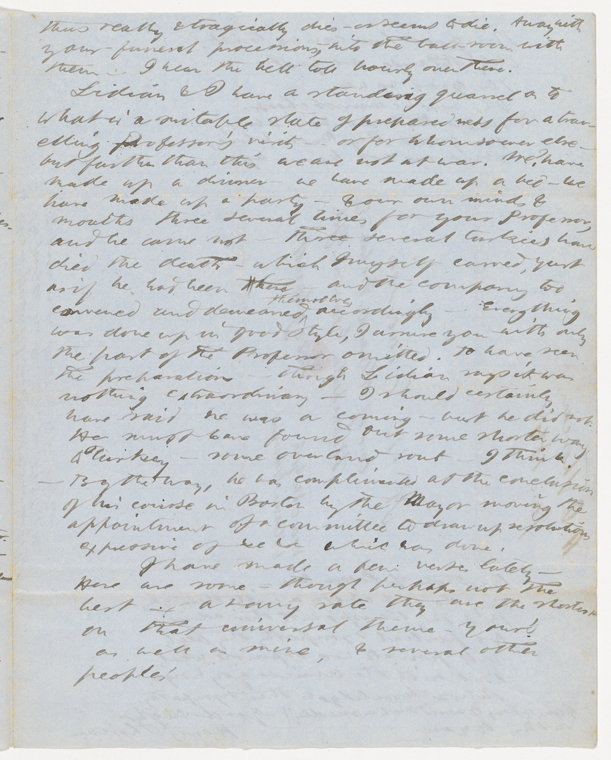 thus really & tragically dies – or seems to die. Away with
your funeral processions, into the ball-room with
them. I hear the bell toll hourly over there.
Lidian & I have a standing quarrel as to
what is a suitable state of preparedness for a trav-
elling Professor's visit – or for whomsoever else –
but further than this we are not at war. We have
made up a dinner – we have made up a bed – we
have made up a party – & our own minds &
mouths three several times for your Professor,
and he came not – three several turkies have
died the death – which I myself carved, just
as if he had been there – and the company too
convened and demeaned themselves accordingly – Everything
was done up in good style, I assure you with only
the part of the Professor omitted. To have seen
the preparation – though Lidian says it was
nothing extraordinary – I should certainly
have said he was a coming – but he did not.
He must have found out some shorter way
to Turkey – some overland rout – I think.
– By the way, he was complimented at the conclusion
of his course in Boston by the Mayor moving the
appointment of a committee to draw up resolutions
expressive of &c &c which was done.
I have made a few verses lately –
Here are some – though perhaps not the
best – at any rate they are the shortest
on that universal theme – yours
as well as mine, & several other
people's